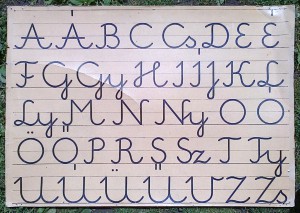 A Á B C Cs D E É
F G Gy H I Í J K L
Ly M N Ny O Ó
Ö Ő P R S Sz T Ty
U Ú Ü Ű V Z Zs